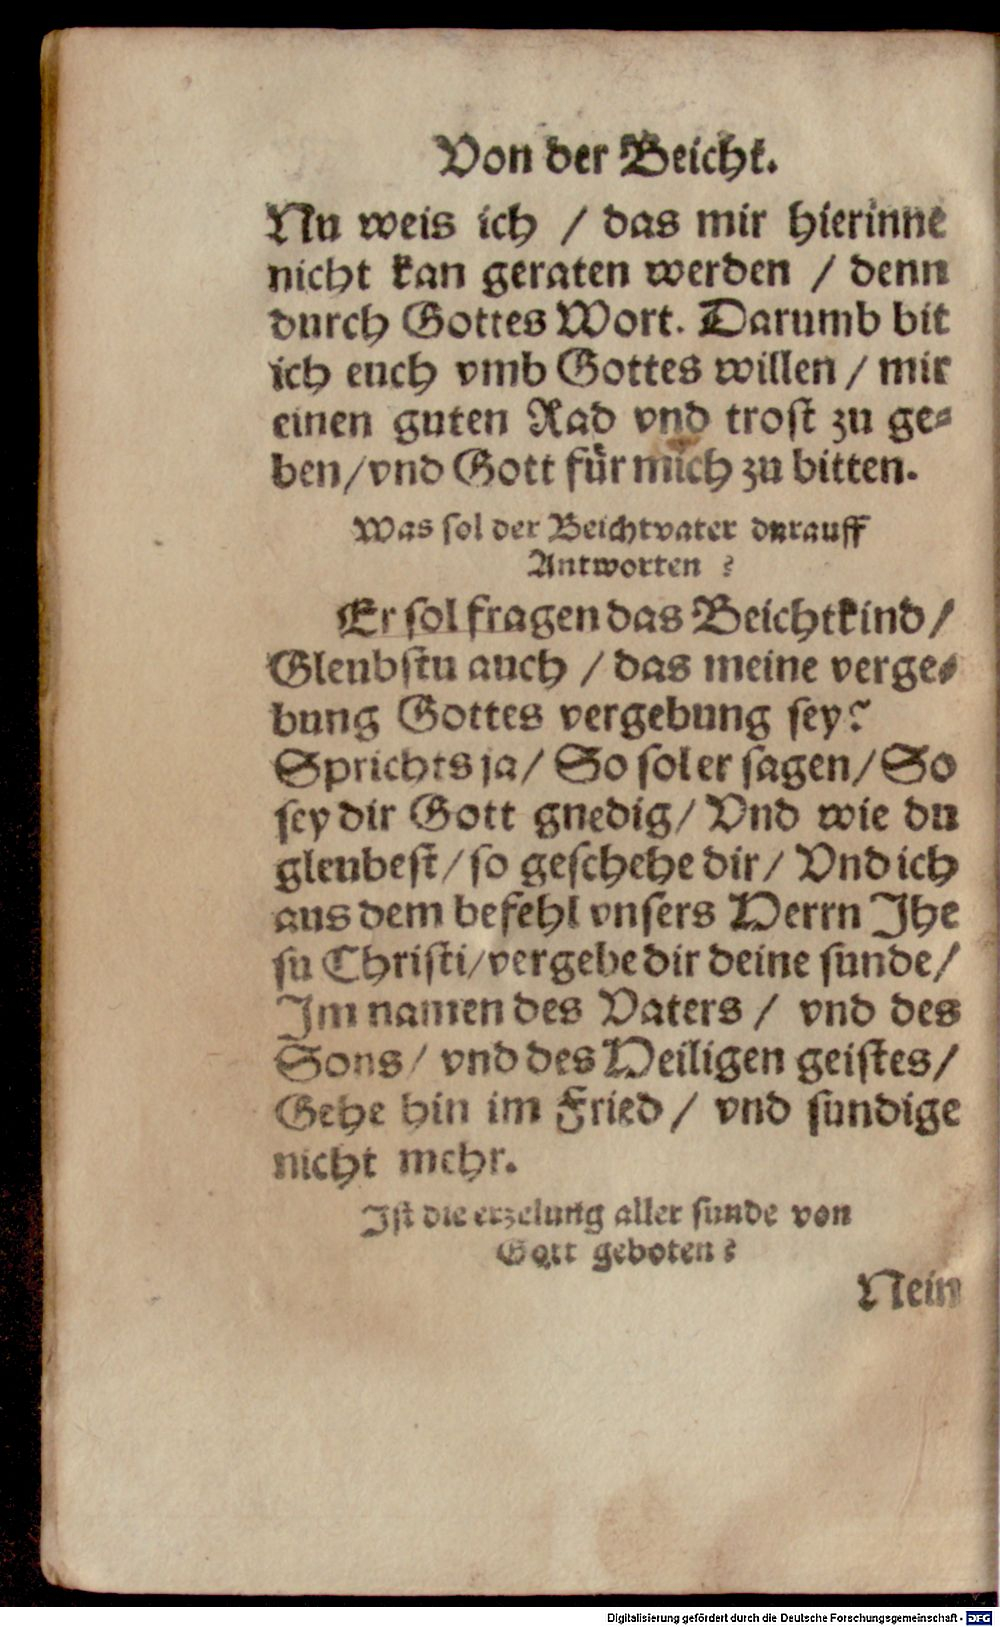 Von der Beicht.
Nu weis ich / das mir hierinne
nicht kan geraten werden / denn
durch Gottes Wort. Darumb bit
ich euch vmb Gottes willen / mir
einen guten Rad vnd trost zu ge-
ben/vnd Gott für mich zu bitten.
Was sol der Beichtvater darauff
Antworten ?
Er sol fragen das Beichtkind /
Gleubstu auch / das meine verge-
bung Gottes vergebung sey?
Sprichts ja / So sol er sagen / So
sey dir Gott gnedig / Vnd wie du
gleubest / so geschehe dir / Vnd ich
aus dem befehl vnsers Herrn Jhe
su Christi/vergebe dir deine sunde/
Im namen des Vaters / vnd des
Sons / vnd des Heiligen geistes/
Gehe hin im Fried / vnd sundige
nicht mehr.
Ist die erzelung aller sunde von
Gott geboten ?
Nein
Digitalisierung gefördert durch die Deutsche Forschungsgemeinschaft - DFG